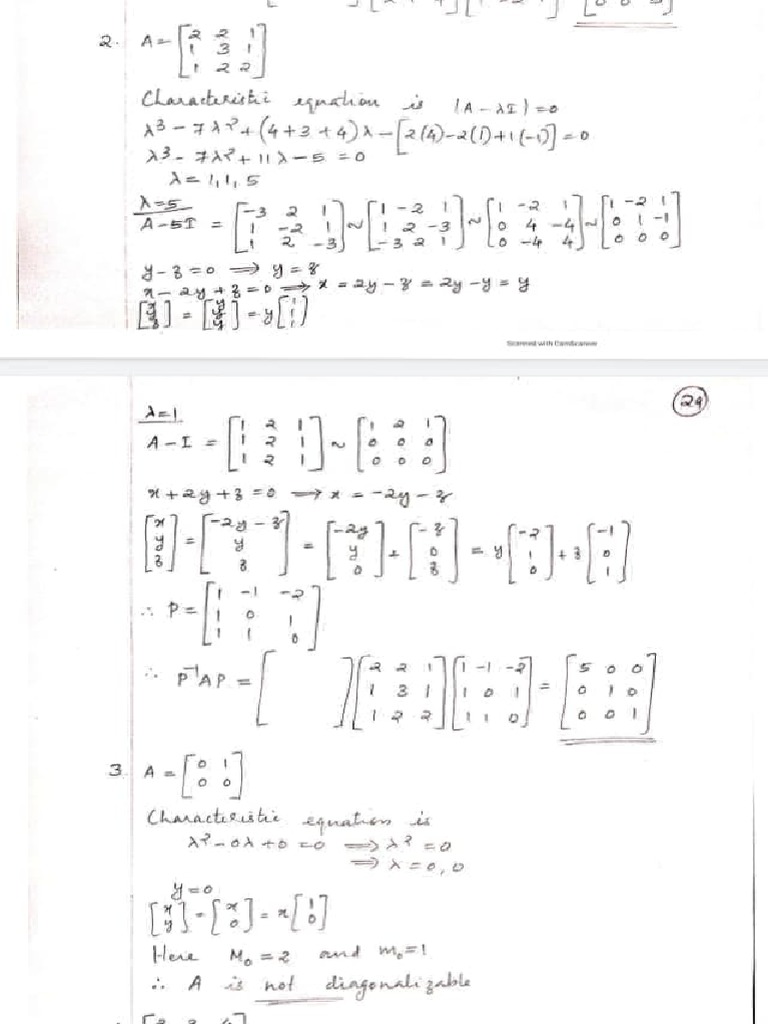 2. A = [2 2 1; 1 3 1; 1 2 2]
Characteristic equation is |A - λI| = 0
λ³ - 7λ² + (4+3+4)λ - [2(4) - 2(1) + 1(-1)] = 0
λ³ - 7λ² + 11λ - 5 = 0
λ = 1, 1, 5
λ = 5
A - 5I = [-3 2 1; 1 -2 1; 1 2 -3] ~ [1 -2 1; 1 2 -3; -3 2 1] ~ [1 -2 1; 0 4 -4; 0 -4 4] ~ [1 -2 1; 0 1 -1; 0 0 0]
y - z = 0 ⟹ y = z
x - 2y + z = 0 ⟹ x = 2y - z = 2y - y = y
[x; y; z] = [y; y; y] = y[1; 1; 1]
Scanned with CamScanner
24
λ = 1
A - I = [1 2 1; 1 2 1; 1 2 1] ~ [1 2 1; 0 0 0; 0 0 0]
x + 2y + z = 0 ⟹ x = -2y - z
[x; y; z] = [-2y - z; y; z] = [-2y; y; 0] + [-z; 0; z] = y[-2; 1; 0] + z[-1; 0; 1]
∴ P = [1 -1 -2; 1 0 1; 1 1 0]
∴ P⁻¹AP = [ ][2 2 1; 1 3 1; 1 2 2][1 -1 -2; 1 0 1; 1 1 0] = [5 0 0; 0 1 0; 0 0 1]
3. A = [0 1; 0 0]
Characteristic equation is
λ² - 0λ + 0 = 0 ⟹ λ² = 0
⟹ λ = 0, 0
y = 0
[x; y] = [x; 0] = x[1; 0]
Here M₀ = 2 and m₀ = 1
∴ A is not diagonalizable